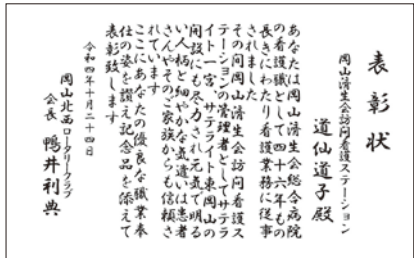 表彰状
岡山済生会訪問看護ステーション
道仙道子殿
あなたは岡山済生会総合病院
の看護職として四十六年もの
長きにわたり看護業務に従事
されました
その間岡山済生会訪問看護ス
テーションの管理者としてサテラ
イト一宮、サテライト東岡山の
開設にも尽力され元気で明る
い人柄と細やかな気遣いは患者
さんやそのご家族からも信頼さ
れています
ここにあなたの優良な職業奉
仕の姿を讃え記念品を添えて
表彰致します
令和四年十月二十四日
岡山北西ロータリークラブ
会長 鴨井利典